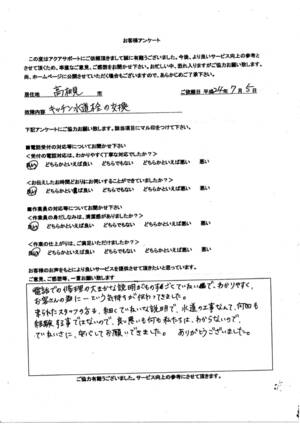 お客様アンケート
この度はアクアサポートにご依頼頂きまして誠に有難うございました。今後、より良いサービス向上の参考と
させて頂くため、率直なご意見、ご感想をお聞かせ下さい。お忙しい中、恐れ入りますがご協力お願い致します。
尚、ホームページに公開させていただく場合もございますので、あらかじめご了承下さい。
居住地 高槻 市 ご依頼日 平成24年7月5日
故障内容 キッチン水道栓の交換
下記アンケートにご協力お願い致します。該当項目にマル印をつけて下さい。
■電話受付の対応等についてお聞かせ下さい
<受付の電話対応は、わかりやすく丁寧な対応でしたか?>
良い どちらかといえば良い どちらともいえない どちらかといえば悪い 悪い
<お伝えしたお時間どおりにお伺いすることができていましたか?>
良い どちらかといえば良い どちらともいえない どちらかといえば悪い 悪い
■作業員の対応等についてお聞かせ下さい
<作業員の身だしなみは、清潔感がありましたか?>
良い どちらかといえば良い どちらともいえない どちらかといえば悪い 悪い
<作業の仕上がりは、ご満足いただけましたか?>
良い どちらかといえば良い どちらともいえない どちらかといえば悪い 悪い
お客様のお声をもとにより良いサービスを提供させて頂きたいと思っています。
ご意見、ご感想等、一言お願い致します
電話での修理の大まかな説明がものすごくていねいで、わかりやすく、
お客さんの為に一という気持ちが伝わってきました。
来られたスタッフの方も、細かくていねいな説明で、水道の工事なんて、何回も
経験する事ではないので、良い悪いも何も私たちは、わからないので、
ていねいさに、安心してお願いできました。 ありがとうございました。
ご協力有難うございました。サービス向上の参考にさせて頂きます。